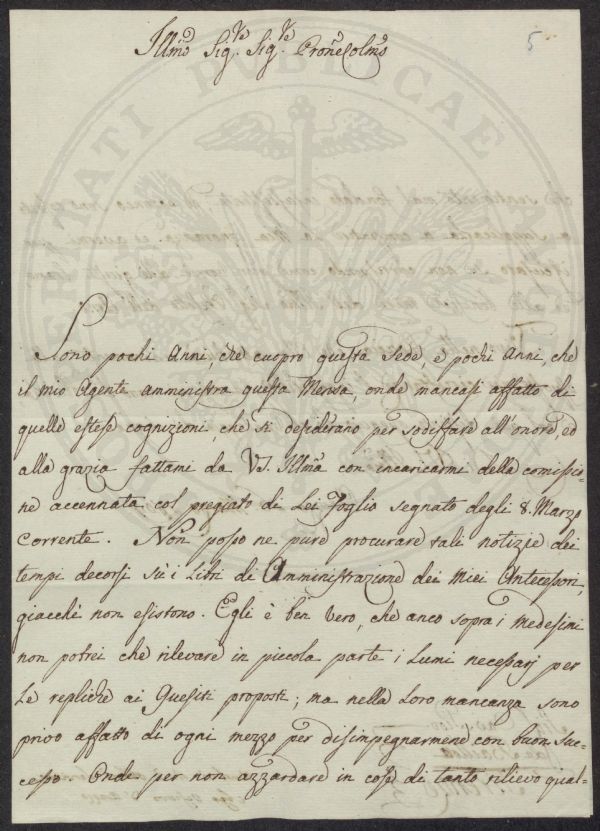 5
Illmo Sig.re Sig.re Prone Colmo
Sono pochi Anni, che cuopro questa Sede, e pochi Anni, che
il mio Agente amministra questa Mensa, onde mancasi affatto di
quelle estese cognizioni, che si desiderano per sodisfare all'onore, ed
alla grazia fattami da VS. Illma con incaricarmi della comissio-
ne accennata col pregiato di Lei Foglio segnato degli 8. Marzo
Corrente. Non posso ne pure procurare tali notizie dei
tempi decorsi sù i Libri di Amministrazione dei Miei Antecessori,
giacchè non esistono. Egli è ben vero, che anco sopra i medesimi
non potrei che rilevare in piccola parte i Lumi necessarj per
Le repliche ai Quesiti proposti; ma nella Loro mancanza sono
privo affatto di ogni mezzo per disimpegnarmene con buon suc-
cesso. Onde per non azzardare in cose di tanto rilievo qual-